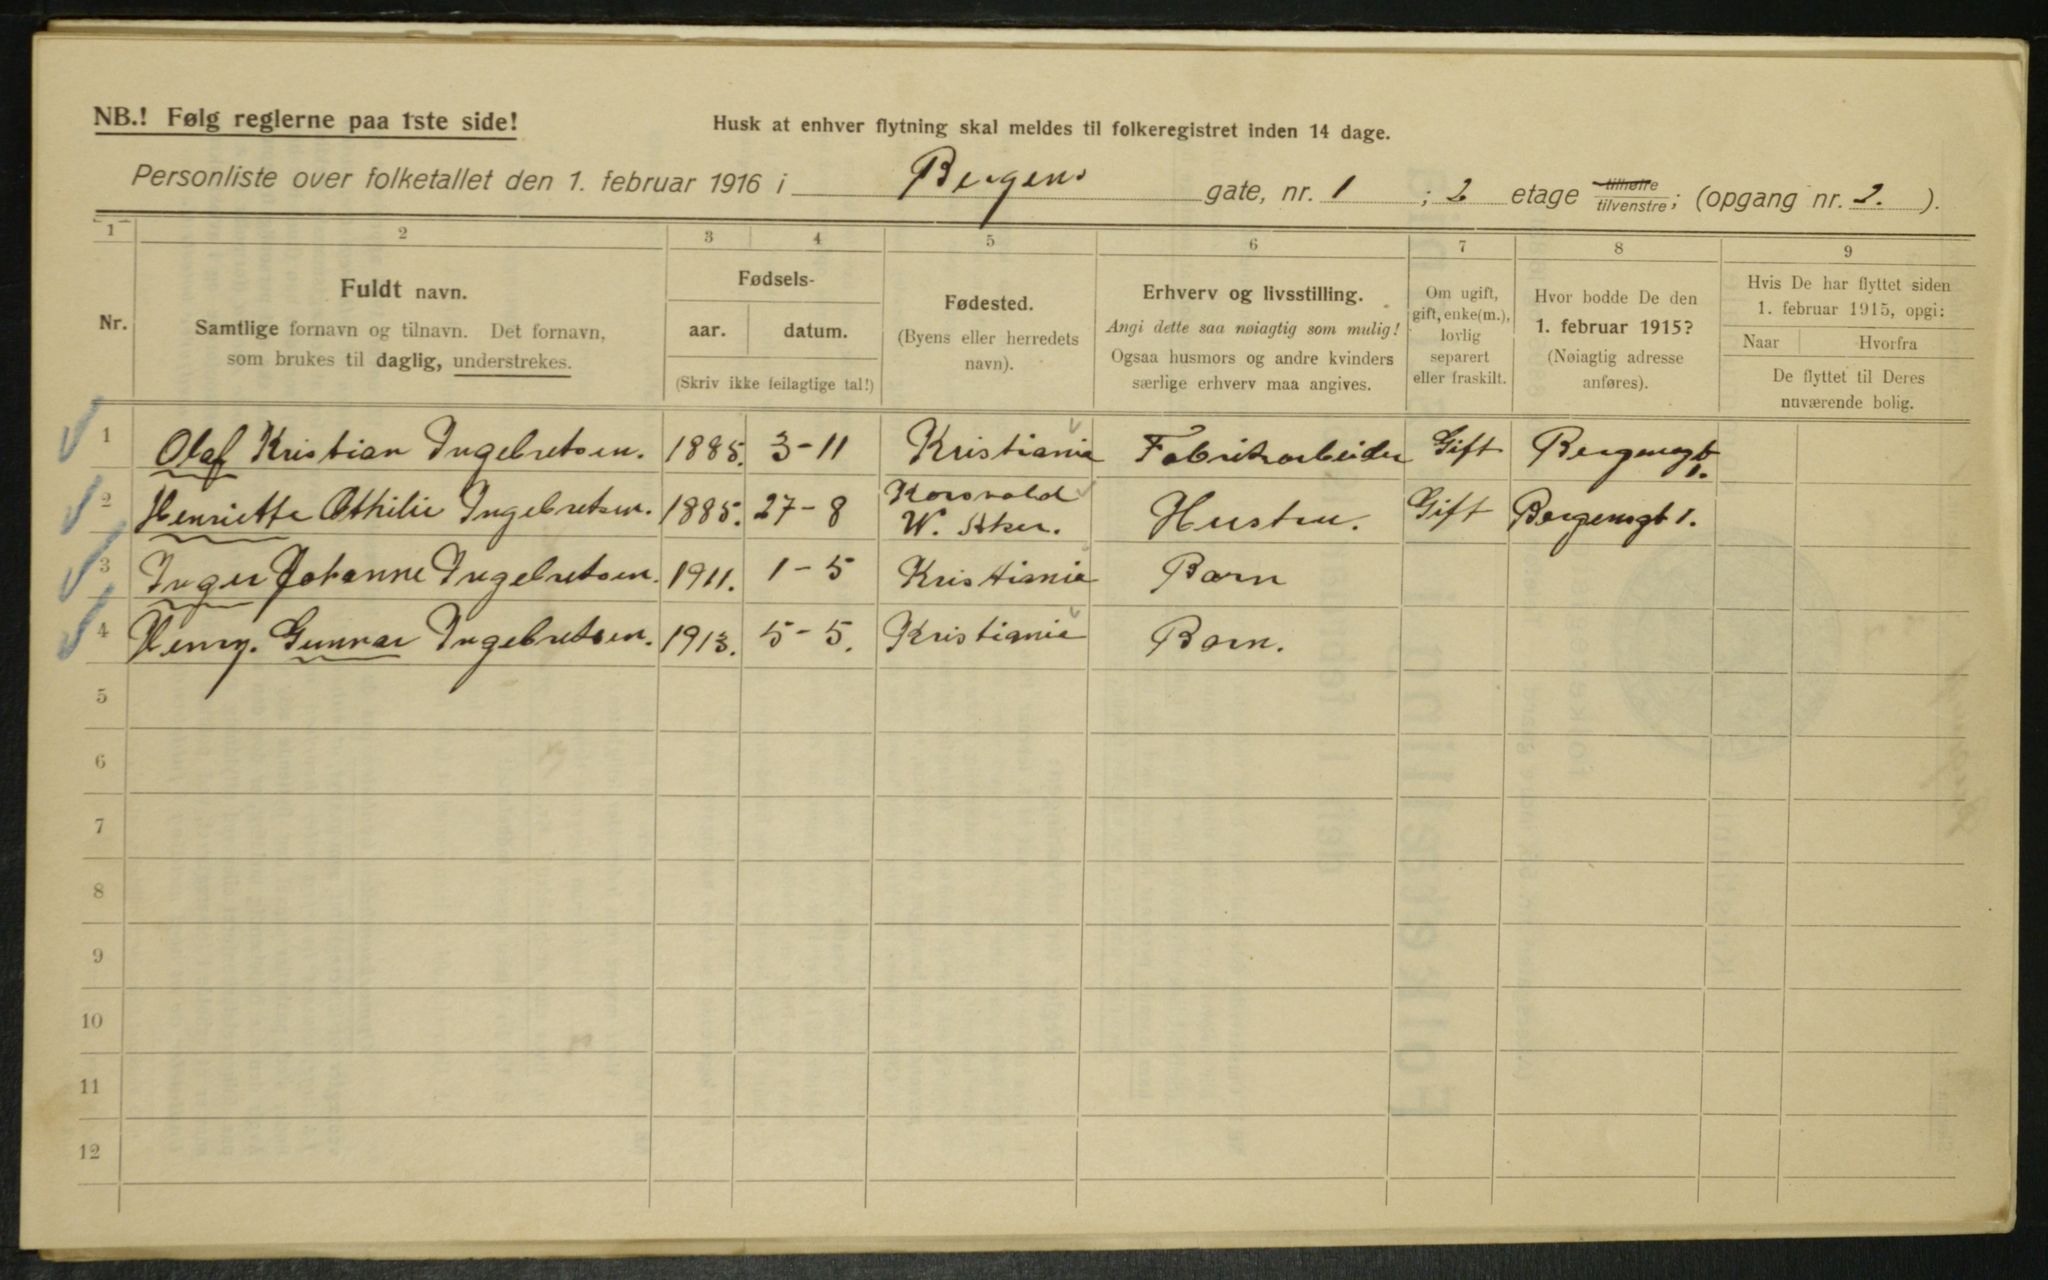 NB.! Følg reglerne paa 1ste side!
Husk at enhver flytning skal meldes til folkeregistret inden 14 dage.
Personliste over folketallet den 1. februar 1916 i Bergens gate, nr. 1 ; 2 etage tilhøire tilvenstre; (opgang nr. 2. ).
1 2 3 4 5 6 7 8 9
Nr.
Fuldt navn.
Samtlige fornavn og tilnavn. Det fornavn,
som brukes til daglig, understrekes.
Fødsels-
aar. datum.
(Skriv ikke feilagtige tal!)
Fødested.
(Byens eller herredets
navn).
Erhverv og livsstilling.
Angi dette saa nøiagtig som mulig!
Ogsaa husmors og andre kvinders
særlige erhverv maa angives.
Om ugift,
gift, enke(m.),
lovlig
separert
eller fraskilt.
Hvor bodde De den
1. februar 1915?
(Nøiagtig adresse
anføres).
Hvis De har flyttet siden
1. februar 1915, opgi:
Naar Hvorfra
De flyttet til Deres
nuværende bolig.
1 Olaf Kristian Ingebretsen. 1885. 3-11 Kristiania Fabrikarbeider Gift Bergensgt 1.
2 Henriette Othilie Ingebretsen. 1885. 27-8 Korsvold W. Aker. Hustru. Gift Bergensgt 1.
3 Inger Johanne Ingebretsen. 1911. 1-5 Kristiania Barn
4 Henry. Gunnar Ingebretsen. 1913. 5-5. Kristiania Barn.
5
6
7
8
9
10
11
12